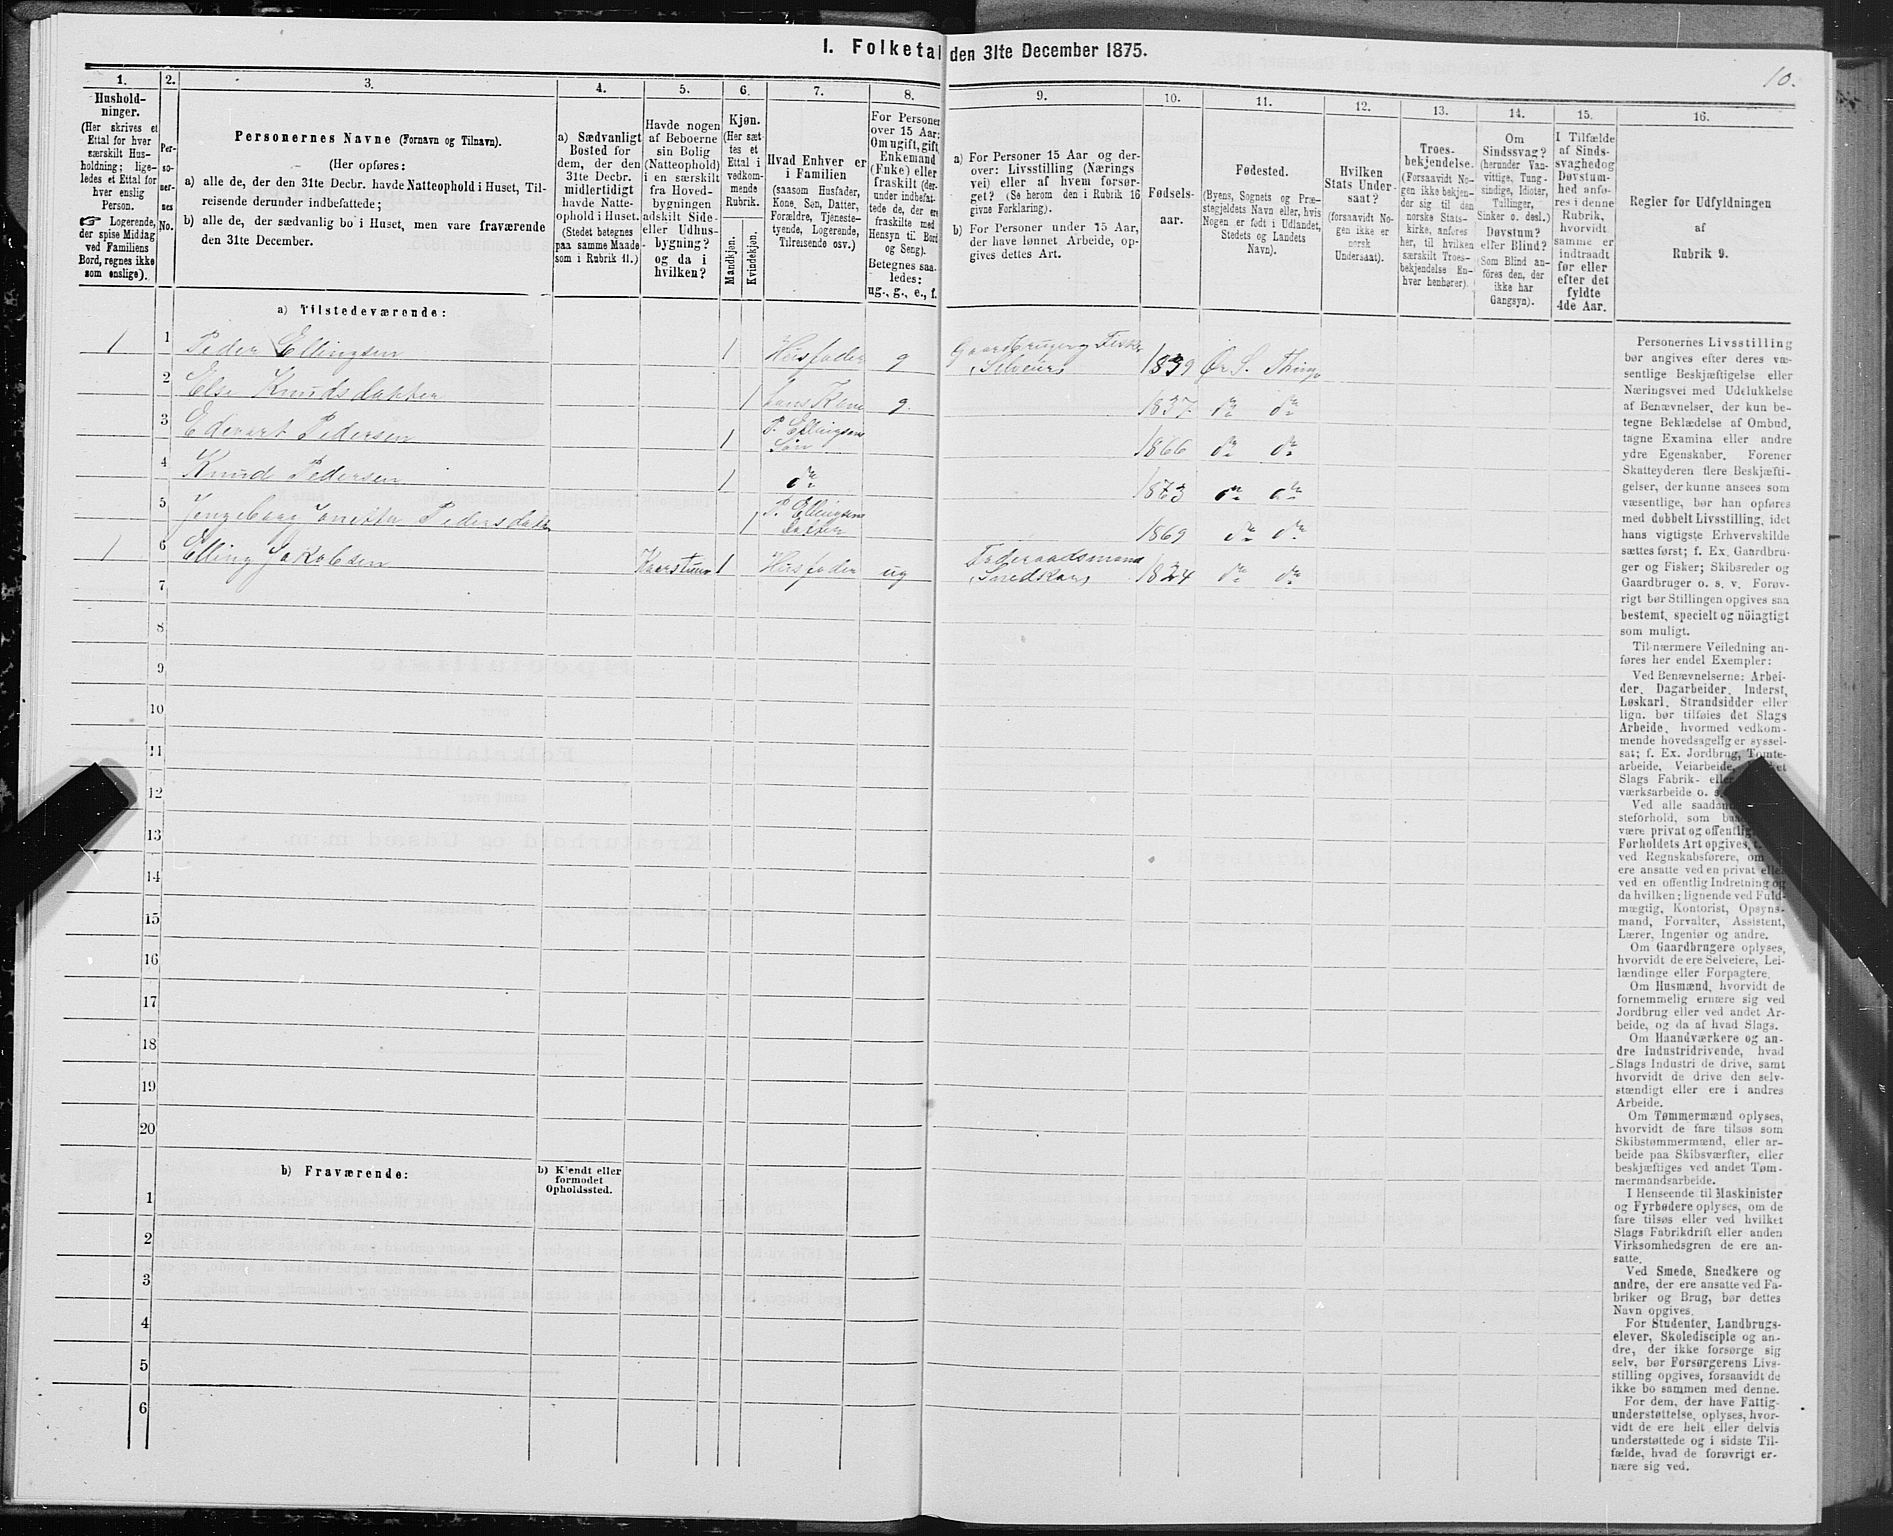 I. Folketal den 31te December 1875.
10.
1.
Hushold-
ninger.
(Her skrives et
Ettal for hver
særskilt Hus-
holdning; lige-
ledes et Ettal for
hver enslig
Person.
☞ Logerende,
der spise Middag
ved Familiens
Bord, regnes ikke
som enslige).
2.
Per-
so-
ner-
nes
No.
3.
Personernes Navne (Fornavn og Tilnavn).
(Her opføres:
a) alle de, der den 31te Decbr. havde Natteophold i Huset, Til-
reisende derunder indbefattede;
b) alle de, der sædvanlig bo i Huset, men vare fraværende
den 31te December.
4.
a) Sædvanligt
Bosted for
dem, der den
31te Decbr.
midlertidigt
havde Natte-
ophold i Huset.
(Stedet betegnes
paa samme Maade
som i Rubrik 11.)
5.
Havde nogen
af Beboerne
sin Bolig
(Natteophold)
i en særskilt
fra Hoved-
bygningen
adskilt Side-
eller Udhus-
bygning?
og da i
hvilken?
6.
Kjøn.
(Her sæt-
tes et
Ettal i
vedkom-
mende
Rubrik.
Mandkjøn.
Kvindekjøn.
7.
Hvad Enhver er
i Familien
(saasom Husfader,
Kone, Søn, Datter,
Forældre, Tjeneste-
tyende, Logerende,
Tilreisende osv.)
8.
For Personer
over 15 Aar:
Om ugift, gift,
Enkemand
(Enke) eller
fraskilt (der-
under indbefat-
tede de, der ere
fraskilte med
Hensyn til Bord
og Seng).
Betegnes saa-
ledes:
ug., g., e., f.
9.
a) For Personer 15 Aar og der-
over: Livsstilling (Nærings
vei) eller af hvem forsør-
get? (Se herom den i Rubrik 16
givne Forklaring).
b) For Personer under 15 Aar,
der have lønnet Arbeide, op-
gives dettes Art.
10.
Fødsels-
aar.
11.
Fødested.
(Byens, Sognets og Præ-
stegjeldets Navn eller, hvis
Nogen er født i Udlandet,
Stedets og Landets
Navn).
12.
Hvilken
Stats Under-
saat?
(forsaavidt No-
gen ikke er
norsk
Undersaat).
13.
Troes-
bekjendelse.
(Forsaavidt No-
gen ikke bekjen-
der sig til den
norske Stats-
kirke, anføres
her, til hvilken
særskilt Troes-
bekjendelse En-
hver henhører).
14.
Om
Sindssvag?
(herunder Van-
vittige, Tung-
sindige, Idioter,
Tullinger,
Sinker o. desl.)
Døvstum?
eller Blind?
(Som Blind an-
føres den, der
ikke har
Gangsyn).
15.
I Tilfælde
af Sinds-
svaghed og
Døvstum-
hed anfø-
res i denne
Rubrik,
hvorvidt
samme er
indtraadt
før eller
efter det
fyldte
4de Aar.
16.
Regler for Udfyldningen
af
Rubrik 9.
a) Tilstedeværende:
1 1 Peder Ellingsen 1 Husfader g Gaardbruger Fisker
Selveier 1839 Ør S. Thingv
2 Else Knudsdatter 1 hans Kone g. 1837 do do
3 Edevart Pedersen 1 P. Ellingsens
Søn 1866 do do
4 Knud Pedersen 1 do 1873 do do
5 Jngeborg Janetta Pedersdatr 1 P. Ellingsens
Datter 1869 do do
1 6 Elling Jakobsen 1 Husfader ug Foderaadsmand
Snedker 1824 do do
7
8
9
10
11
12
13
14
15
16
17
18
19
20
b) Fraværende:
b) Kjendt eller
formodet
Opholdssted.
1
2
3
4
5
6
Personernes Livsstilling
bør angives efter deres væ-
sentlige Beskjæftigelse eller
Næringsvei med Udelukkelse
af Benævnelser, der kun be-
tegne Beklædelse af Ombud,
tagne Examina eller andre
ydre Egenskaber. Forener
Skatteyderen flere Beskjæfti-
gelser, der kunne ansees som
væsentlige, bør han opføres
med dobbelt Livsstilling, idet
hans vigtigste Erhvervskilde
sættes først; f. Ex. Gaardbru-
ger og Fisker; Skibsreder og
Gaardbruger o. s. v. Forøv-
rigt bør Stillingen opgives saa
bestemt, specielt og nöiagtigt
som muligt.
Til nærmere Veiledning an-
føres her endel Exempler:
Ved Benævnelserne: Arbei-
der, Dagarbeider, Inderst,
Løskarl, Strandsidder eller
lign. bør tilføies det Slags
Arbeide, hvormed vedkom-
mende hovedsagelig er syssel-
sat; f. Ex. Jordbrug, Tomte-
arbeide, Veiarbeide,
Slags Fabrik- eller
værksarbeide o. s.
Ved alle
steforhold, som
være privat og offentlig
Forholdets Art opgives,
ved Regnskabsførere, om
ere ansatte ved en privat eller
ved en offentlig Indretning og
da hvilken; lignende ved Fuld-
mægtig, Kontorist, Opsyns-
mand, Forvalter, Assistent,
Lærer, Ingeniør og andre.
Om Gaardbrugere oplyses,
hvorvidt de ere Selveiere, Lei-
lændinge eller Forpagtere.
Om Husmænd, hvorvidt de
fornemmelig ernære sig ved
Jordbrug eller ved andet Ar-
beide, og da af hvad Slags.
Om Haandværkere og an-
dre Industridrivende, hvad
Slags Industri de drive, samt
hvorvidt de drive den selv-
stændigt eller ere i andres
Arbeide.
Om Tømmermænd oplyses,
hvorvidt de fare tilsøs som
Skibstømmermænd, eller ar-
beide paa Skibsværfter, eller
beskjæftiges ved andet Tøm-
mermandsarbeide.
I Henseende til Maskinister
og Fyrbødere oplyses, om de
fare tilsøs eller ved hvilket
Slags Fabrikdrift eller anden
Virksomhedsgren de ere an-
satte.
Ved Smede, Snedkere og
andre, der ere ansatte ved Fa-
briker og Brug, bør dettes
Navn opgives.
For Studenter, Landbrugs-
elever, Skoledisciple og an-
dre, der ikke forsørge sig
selv, bør Forsørgerens Livs-
stilling opgives, forsaavidt de
ikke bo sammen med denne.
For dem, der have Fattig-
understøttelse, oplyses, hvor-
vidt de ere helt eller delvis
understøttede og i sidste Til-
fælde, hvad de forøvrigt er-
nære sig ved.